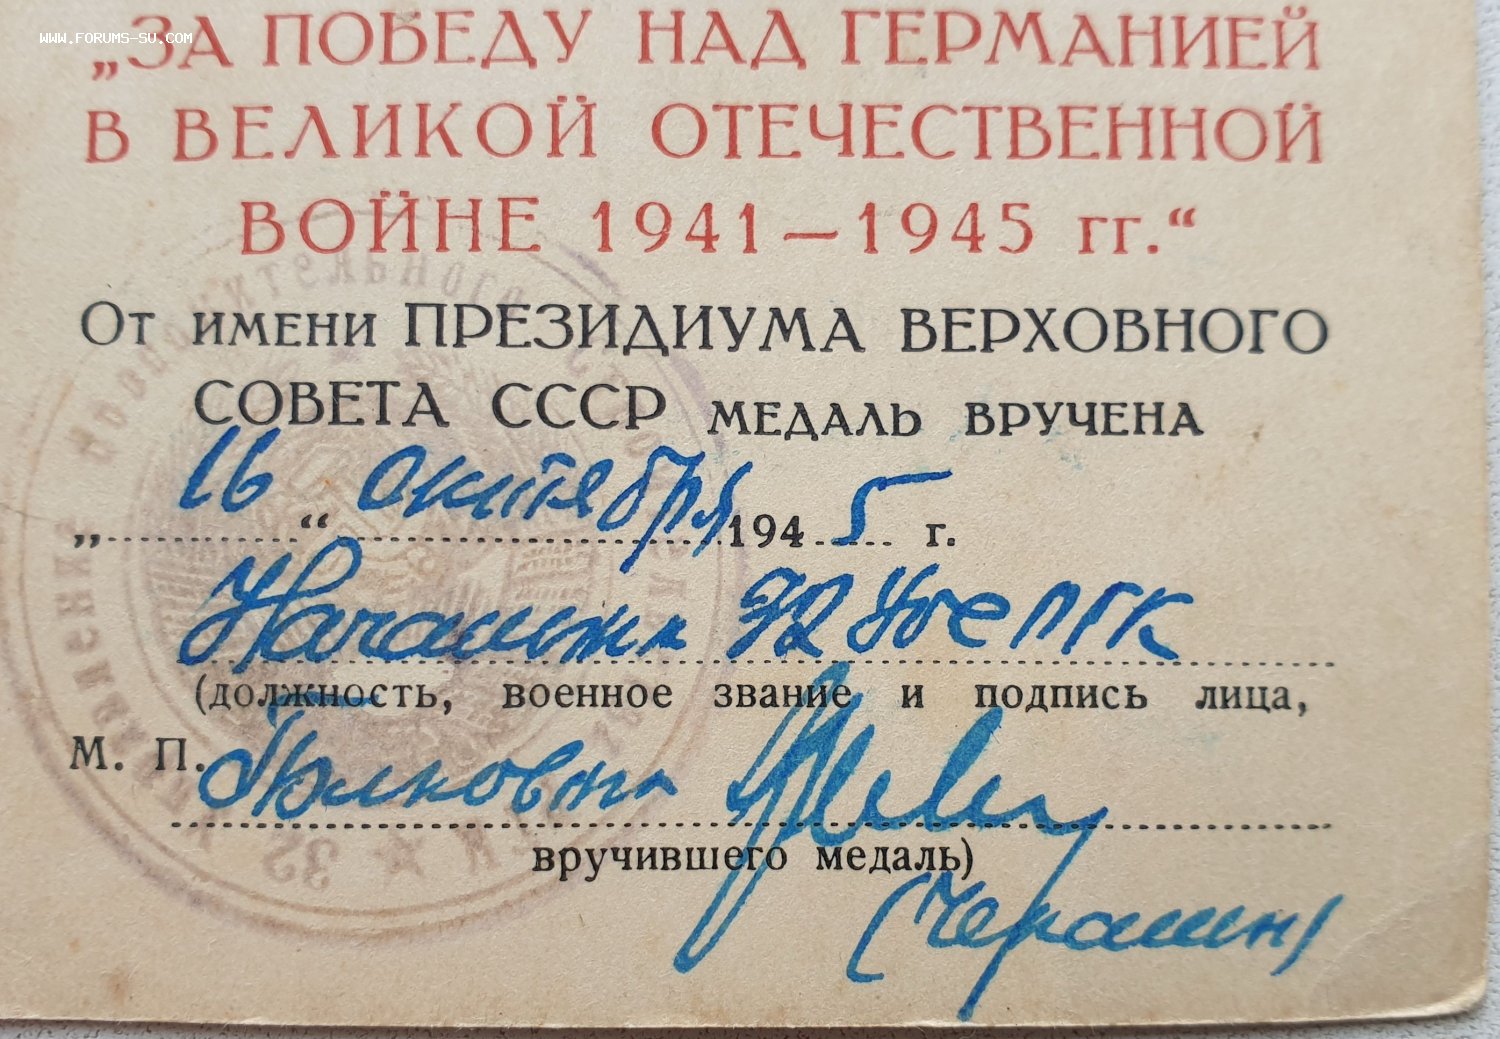 WWW.FORUMS-SU.COM
„ЗА ПОБЕДУ НАД ГЕРМАНИЕЙ
В ВЕЛИКОЙ ОТЕЧЕСТВЕННОЙ
ВОЙНЕ 1941—1945 гг.“
От имени ПРЕЗИДИУМА ВЕРХОВНОГО
СОВЕТА СССР МЕДАЛЬ ВРУЧЕНА
„16“ октября 1945 г.
Начальник
(должность, военное звание и подпись лица,
М. П. Полковник
вручившего медаль)